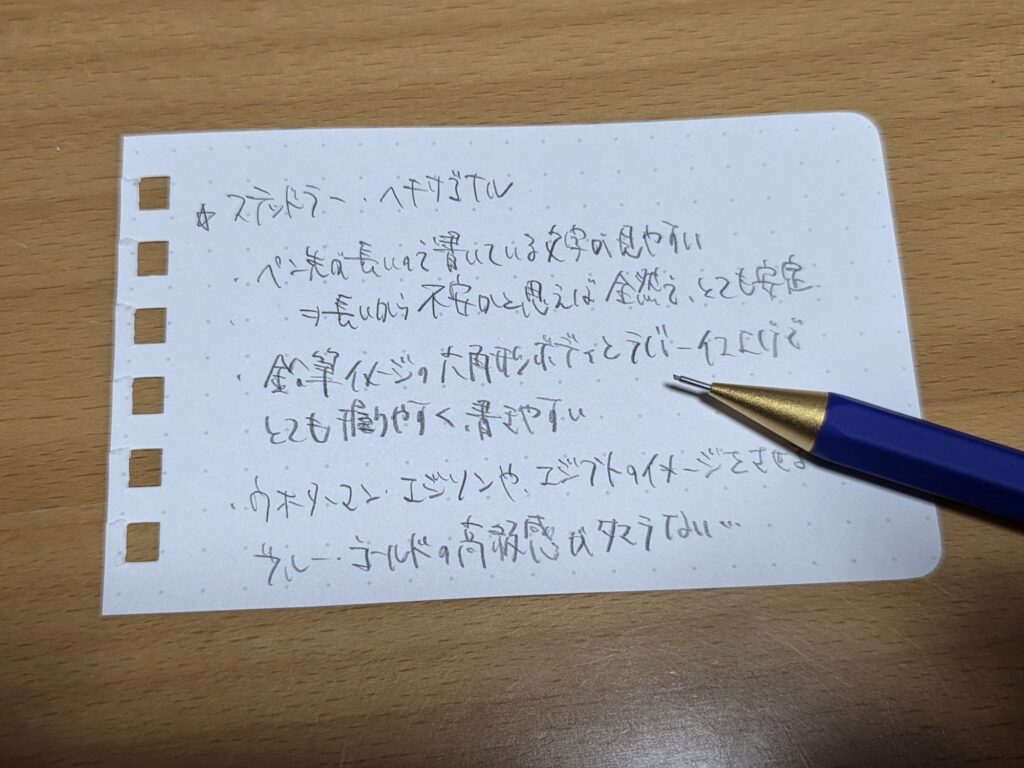 ☆ ステッドラー・ヘキサゴナル
・ペン先が長いので書いている文字が見やすい
⇒長いから不安かと思えば全然で、とても安定
・鉛筆イメージの六角形ボディとラバー仕上げで
とても握りやすく、書きやすい
・ウォーターマン・エジソンや、エジプトのイメージ
ブルー・ゴールドの高級感がタマラない…